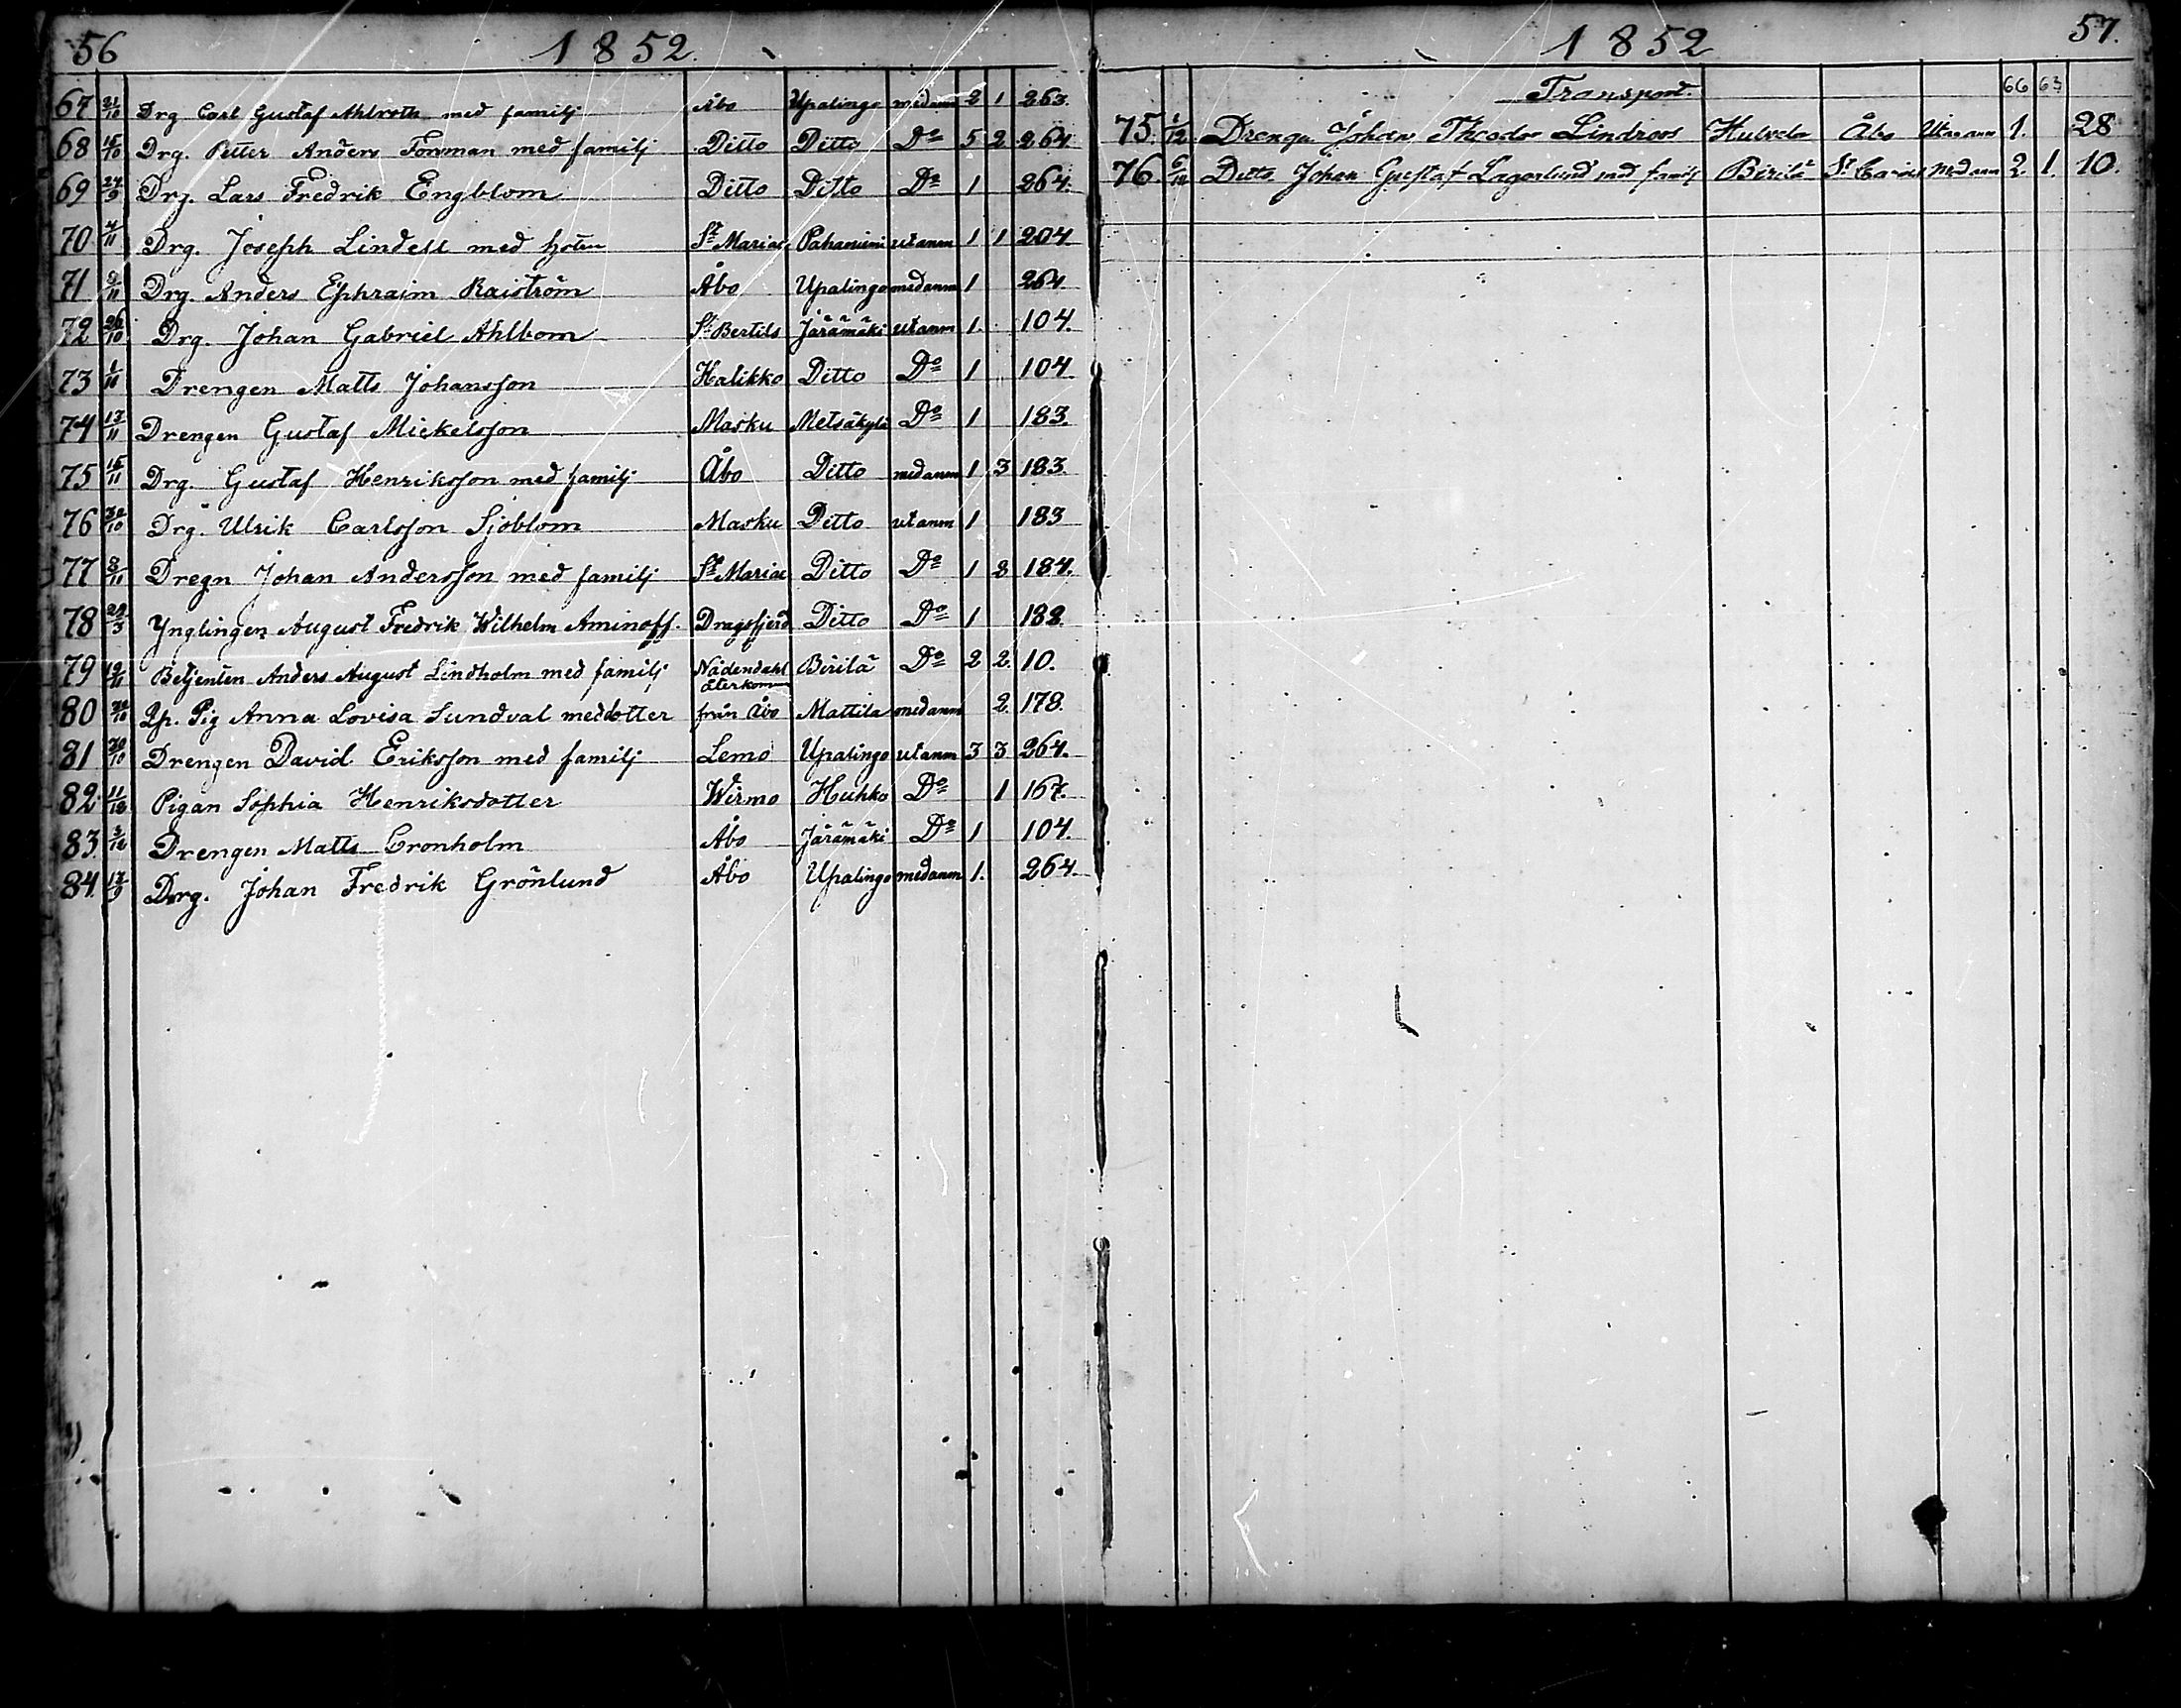 56 1852.
67 21/10 Drg Carl Gustaf Ahlroth med familj Åbo Upalingo med anm 2 1 263.
68 15/10 Drg. Petter Anders Forsman med familj Ditto Ditto Do 5 2 264
69 24/9 Drg. Lars Fredrik Engblom Ditto Ditto Do 1 264.
70 4/11 Drg. Joseph Lindell med hstru St Mariae Pahaniemi utanm 1 1 204
71 5/11 Drg. Anders Ephraim Raiström Åbo Upalingo med anm 1 264.
72 26/10 Drg. Johan Gabriel Ahlbom St Bertils Järämäki utanm 1. 104.
73 1/11 Drengen Matts Johansson Halikko Ditto Do 1 104
74 17/11 Drengen Gustaf Mickelsson Masku Metsäkylä Do 1 183.
75 15/11 Drg. Gustaf Henriksson med familj Åbo Ditto med anm 1 3 183.
76 30/10 Drg. Ulrik Carlsson Sjöblom Masku Ditto utanm 1 183
77 8/11 Dregn Johan Andersson med familj St Mariae Ditto Do 1 2 184.
78 29/3 Ynglingen August Fredrik Wilhelm Aminoff. Dragsfjerd Ditto Do 1 188.
79 19/11 Betjenten Anders August Lindholm med familj Nådendahl Börilä Do 2 2. 10.
återkommen
80 20/10 Qp. Pig Anna Lovisa Sundval med dotter från Åbo Mattila med anm 2. 178.
81 30/10 Drengen David Eriksson med familj Lemo Upalingo utanm 3 3 264.
82. 11/12 Pigan Sophia Henriksdotter Wirmo Huhko Do 1 167.
83. 3/12 Drengen Matts Cronholm Åbo Järämäki Do 1 104.
84. 17/9 Drg. Johan Fredrik Grönlund Åbo Upalingo med anm 1. 264.
1852 57.
Transport. 66 63
75. 1/12 Drengn Johan Theodor Lindroos Hulvela Åbo Utan anm 1. 28
76. 6/12 Ditto Johan Gustaf Lagerlund med familj Börilä St Carins Med anm 2. 1. 10.